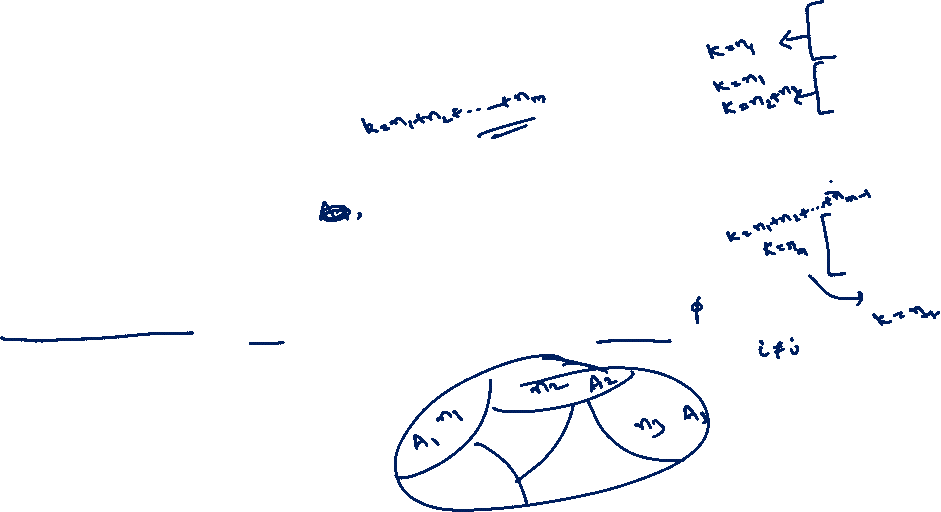 k=n₁
k=n₁
k=n₂+n₃
k=n₁+n₂+.....+nₘ
k=n₁+n₂+...+nₘ₋₁
k=nₘ
φ
i≠j
n₂ A₂
A₁ n₁
n₃ A₃